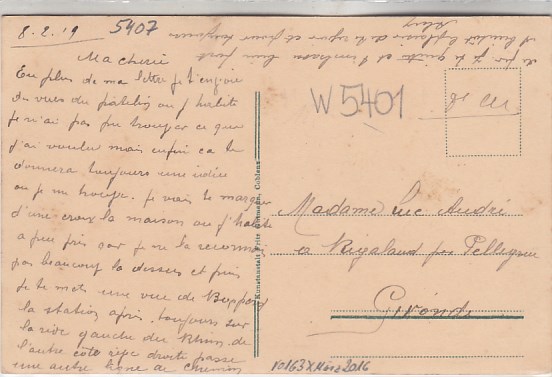 8-2-19
5407
Ma cherie
En plus de ma lettre je t'envoie
du vues du patelin ou j'habite
je n'ai pas pu trouver ce que
j'ai voulu mais enfin ca te
donnera toujours une idée
ou je me trouve. je vais te marquer
d'une croix la maison ou j'habite
a peu près car je ne la reconnais
pas beaucoup la dessus et puis
je te mets une vue de Boppard
la station après toujours sur
la rive gauche du Rhin. de
l'autre côté rive droite passe
une autre ligne de chemin
de fer je te quitte et t'embrasse bien fort
et bientôt le plaisir de te revoir et pour toujours
Luc
W 5401
Kunstanstalt Fritz Coblenz
Madame Luc André
a Rigaland par Pellegrue
Gironde
V0163XMärz2016